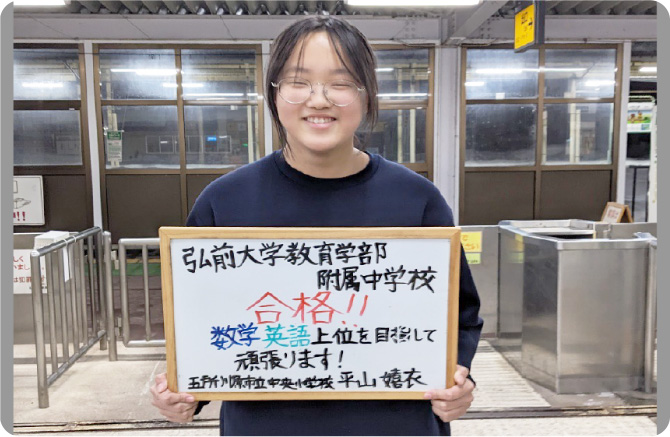 弘前大学教育学部
附属中学校
合格!!
数学英語上位を目指して
頑張ります!
五所川原市立中央小学校 平山 嬉衣
!!